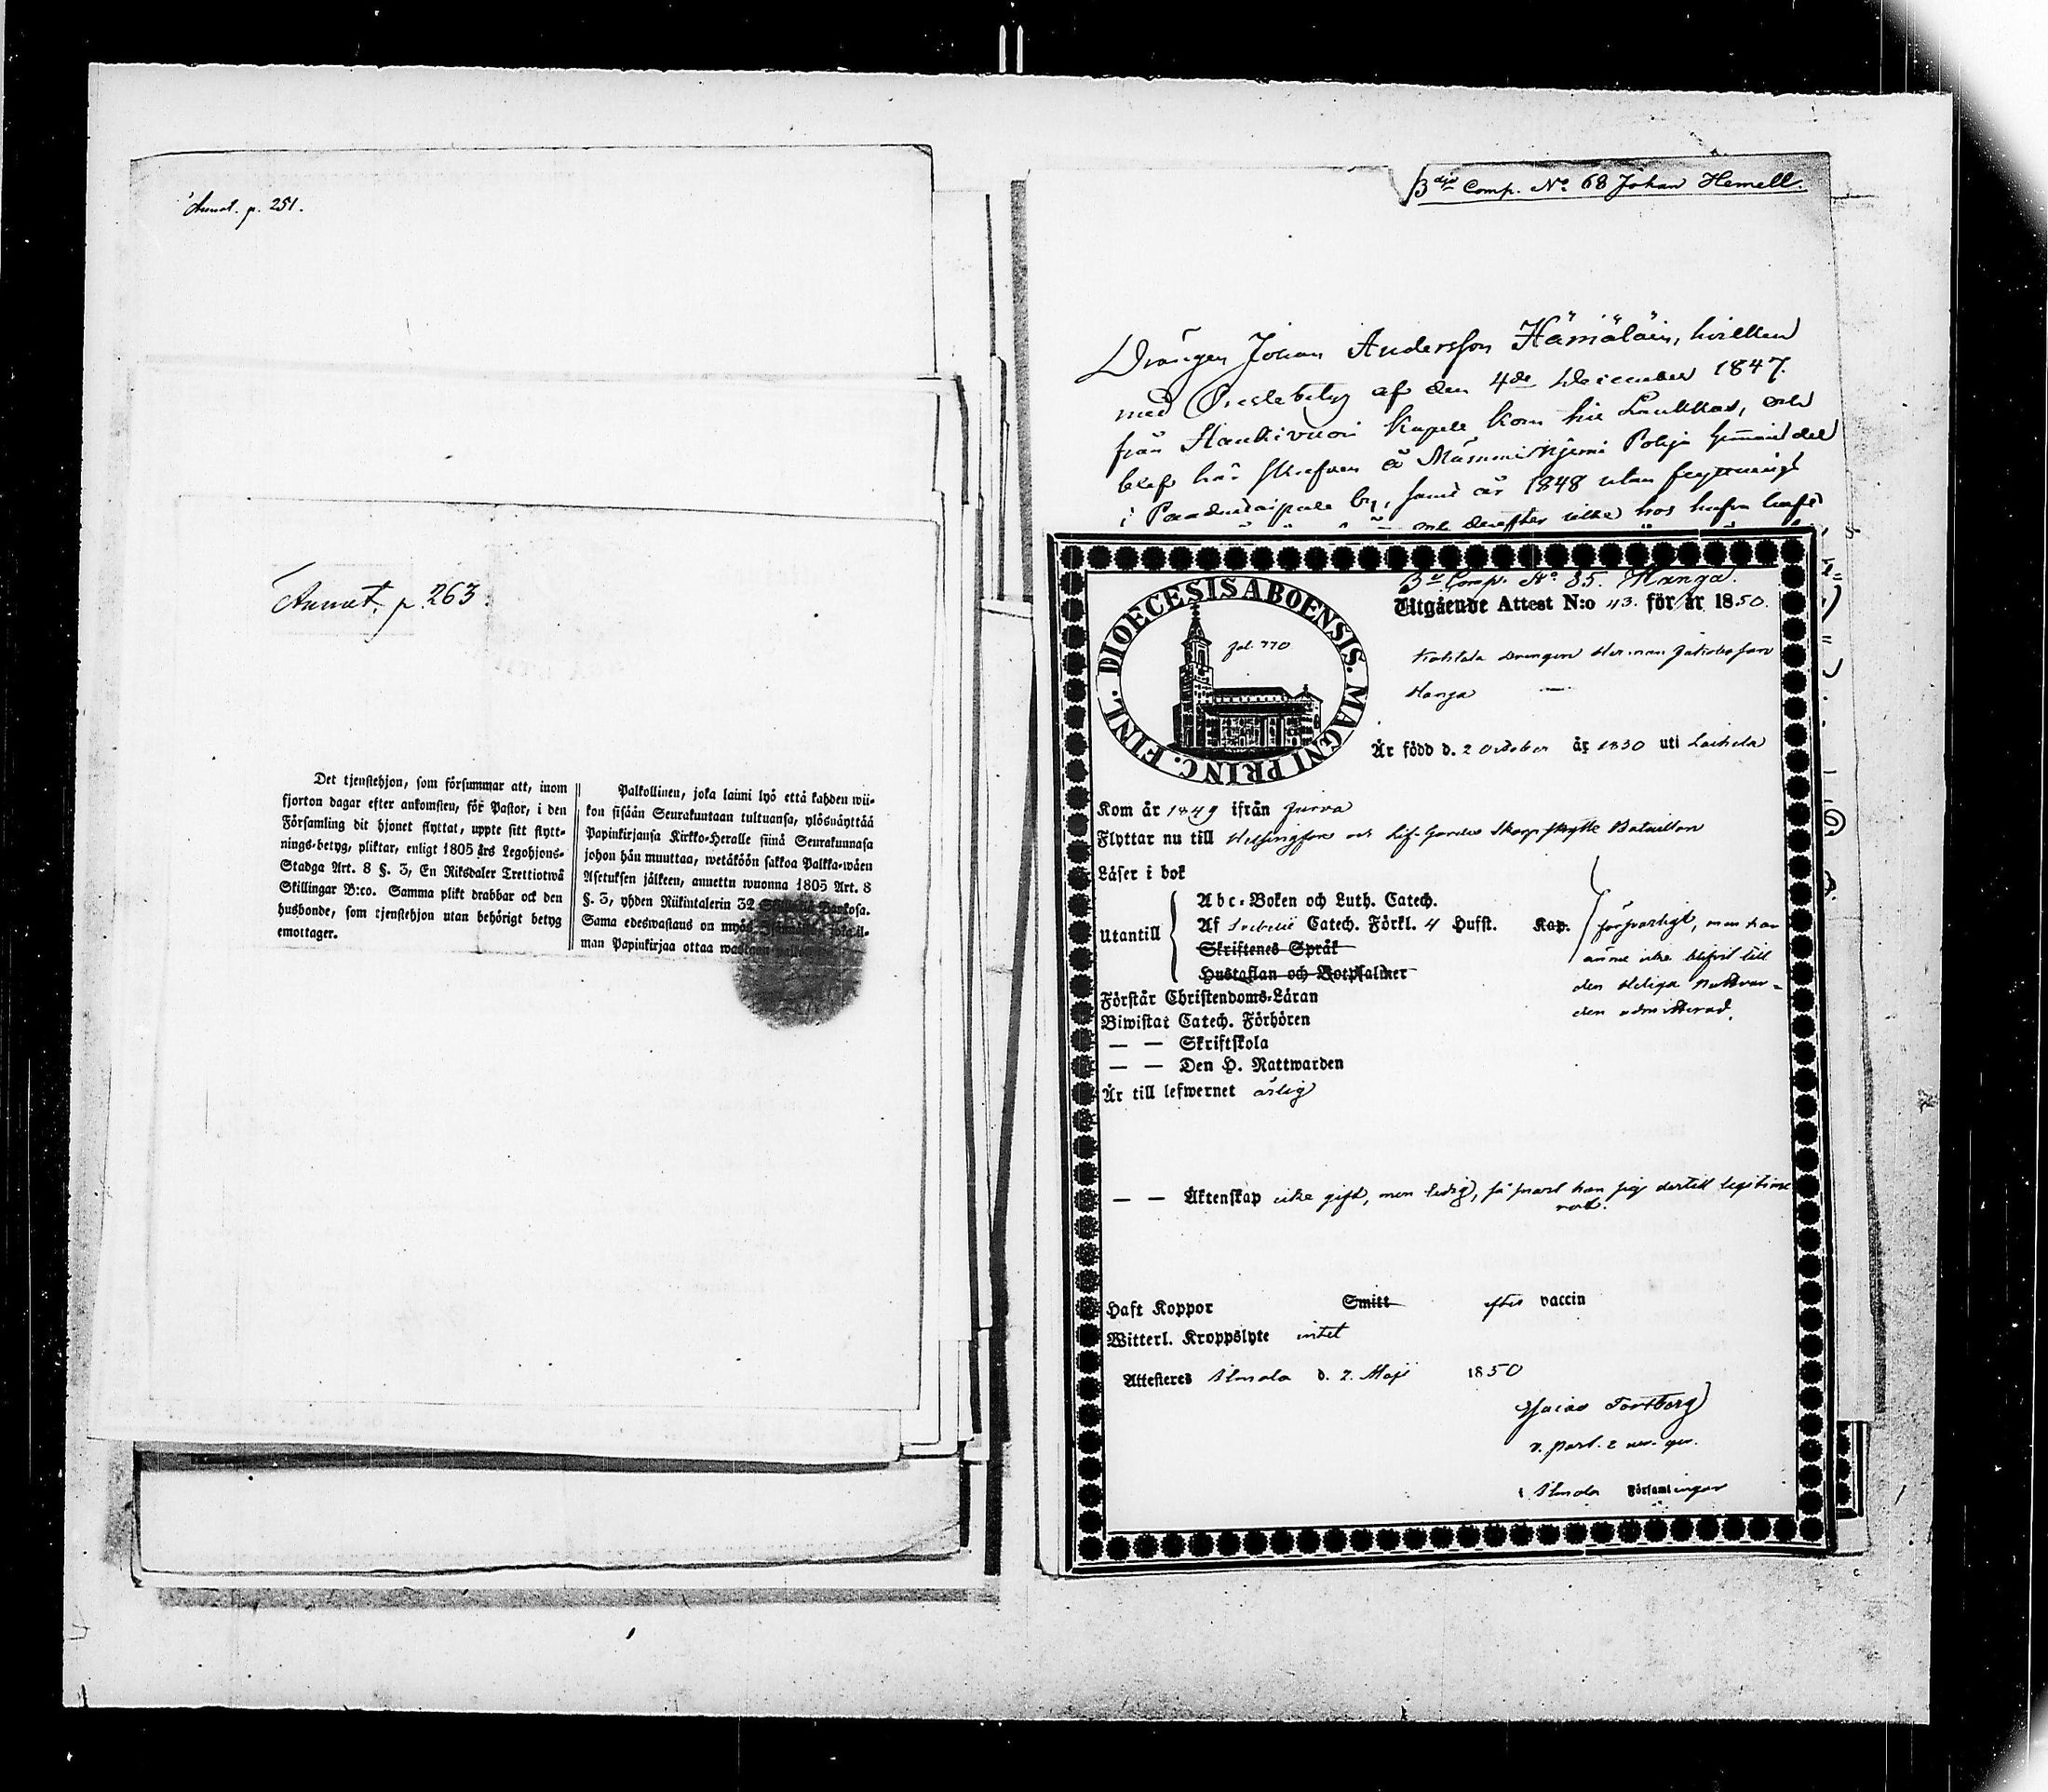 Annot. p. 251.
Annot. p. 263.
Det tjenstehjon, som försummar att, inom
fjorton dagar efter ankomsten, för Pastor, i den
Församling dit hjonet flyttat, uppte sitt flytt-
nings-betyg, pliktar, enligt 1805 års Legohjons-
Stadga Art. 8 §. 3, En Riksdaler Trettiotwå
Skillingar B:co. Samma plikt drabbar ock den
husbonde, som tjenstehjon utan behörigt betyg
emottager.
Palkollinen, joka laimi lyö että kahden wii-
kon sisään Seurakuntaan tultuansa, ylösnäyttää
Papinkirjansa Kirkko-Heralle siinä Seurakunnasa
johon hän muuttaa, wetäköön sakkoa Palkka-wäen
Asetuksen jälkeen, annettu wuonna 1805 Art. 8
§. 3, yhden Riikintalerin 32 Bankosa.
Sama edeswastaus on myös joka il-
man Papinkirjaa ottaa wastaan
3dje Comp. No 68 Johan Hemell.
Drängen Johan Andersson Hämäläin, hvilken
med Prestebetyg af den 4de December 1847
från Haukivuori Kapell kom hit Laukkas, och
blef här skrefven å Pohja hemmandel
i by, samt år 1848 utan
och derefter icke hos
3e Comp. No 85. Hanga.
Utgående Attest N:o 43. för år 1850.
fol. 770
DIOECESIS ABOENSIS. MAGNI PRINC. FINL.
drängen Herman Jakobsson
Hanga —
Är född d. 2 October år 1830 uti Laihela
Kom år 1849 ifrån Jurva
Flyttar nu till Helsingfors och Lif-Gardes Skarpskytte Bataillon
Läser i bok
Utantill
Abc-Boken och Luth. Catech.
Af Svebelii Catech. Förkl. 4 Hufst. Kap.
Skriftenes Språk
Hustaflan och Botpsalmer
försvarligt, men har
ännu icke blifvit till
den Heliga Nattvar-
den admitterad.
Förstår Christendoms-Läran
Biwistat Catech. Förhören
— — Skriftskola
— — Den H. Nattwarden
Är till lefwernet ärlig
— — Äktenskap icke gift, men ledig, så snart han sig dertill legitime
rat.
Haft Koppor Smitt efter vaccin
Witterl. Kroppslyte intet
Attesteres Ilmola d. 2. Maji 1850
Esaias Tortberg
v. past.
i Ilmola Församlingar